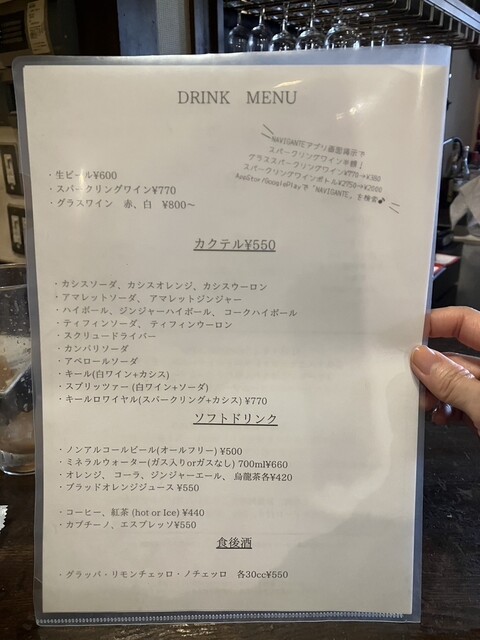 DRINK MENU
NAVIGANTEアプリ画面掲示で
スパークリングワイン半額！
グラススパークリングワイン¥770→¥380
スパークリングワインボトル¥2750→¥2000
AppStor/GooglePlayで「NAVIGANTE」を検索
・生ビール¥600
・スパークリングワイン¥770
・グラスワイン 赤、白 ¥800〜
カクテル¥550
・カシスソーダ、カシスオレンジ、カシスウーロン
・アマレットソーダ、アマレットジンジャー
・ハイボール、ジンジャーハイボール、コークハイボール
・ティフィンソーダ、ティフィンウーロン
・スクリュードライバー
・カンパリソーダ
・アペロールソーダ
・キール(白ワイン+カシス)
・スプリッツァー(白ワイン+ソーダ)
・キールロワイヤル(スパークリング+カシス) ¥770
ソフトドリンク
・ノンアルコールビール(オールフリー) ¥500
・ミネラルウォーター(ガス入りorガスなし) 700ml¥660
・オレンジ、コーラ、ジンジャーエール、烏龍茶各¥420
・ブラッドオレンジジュース ¥550
・コーヒー、紅茶 (hot or Ice) ¥440
・カプチーノ、エスプレッソ¥550
食後酒
・グラッパ・リモンチェッロ・ノチェッロ 各30cc¥550